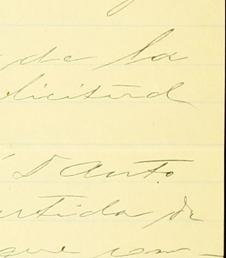 de la
olicitúd
D Anto.
artida de
que con-